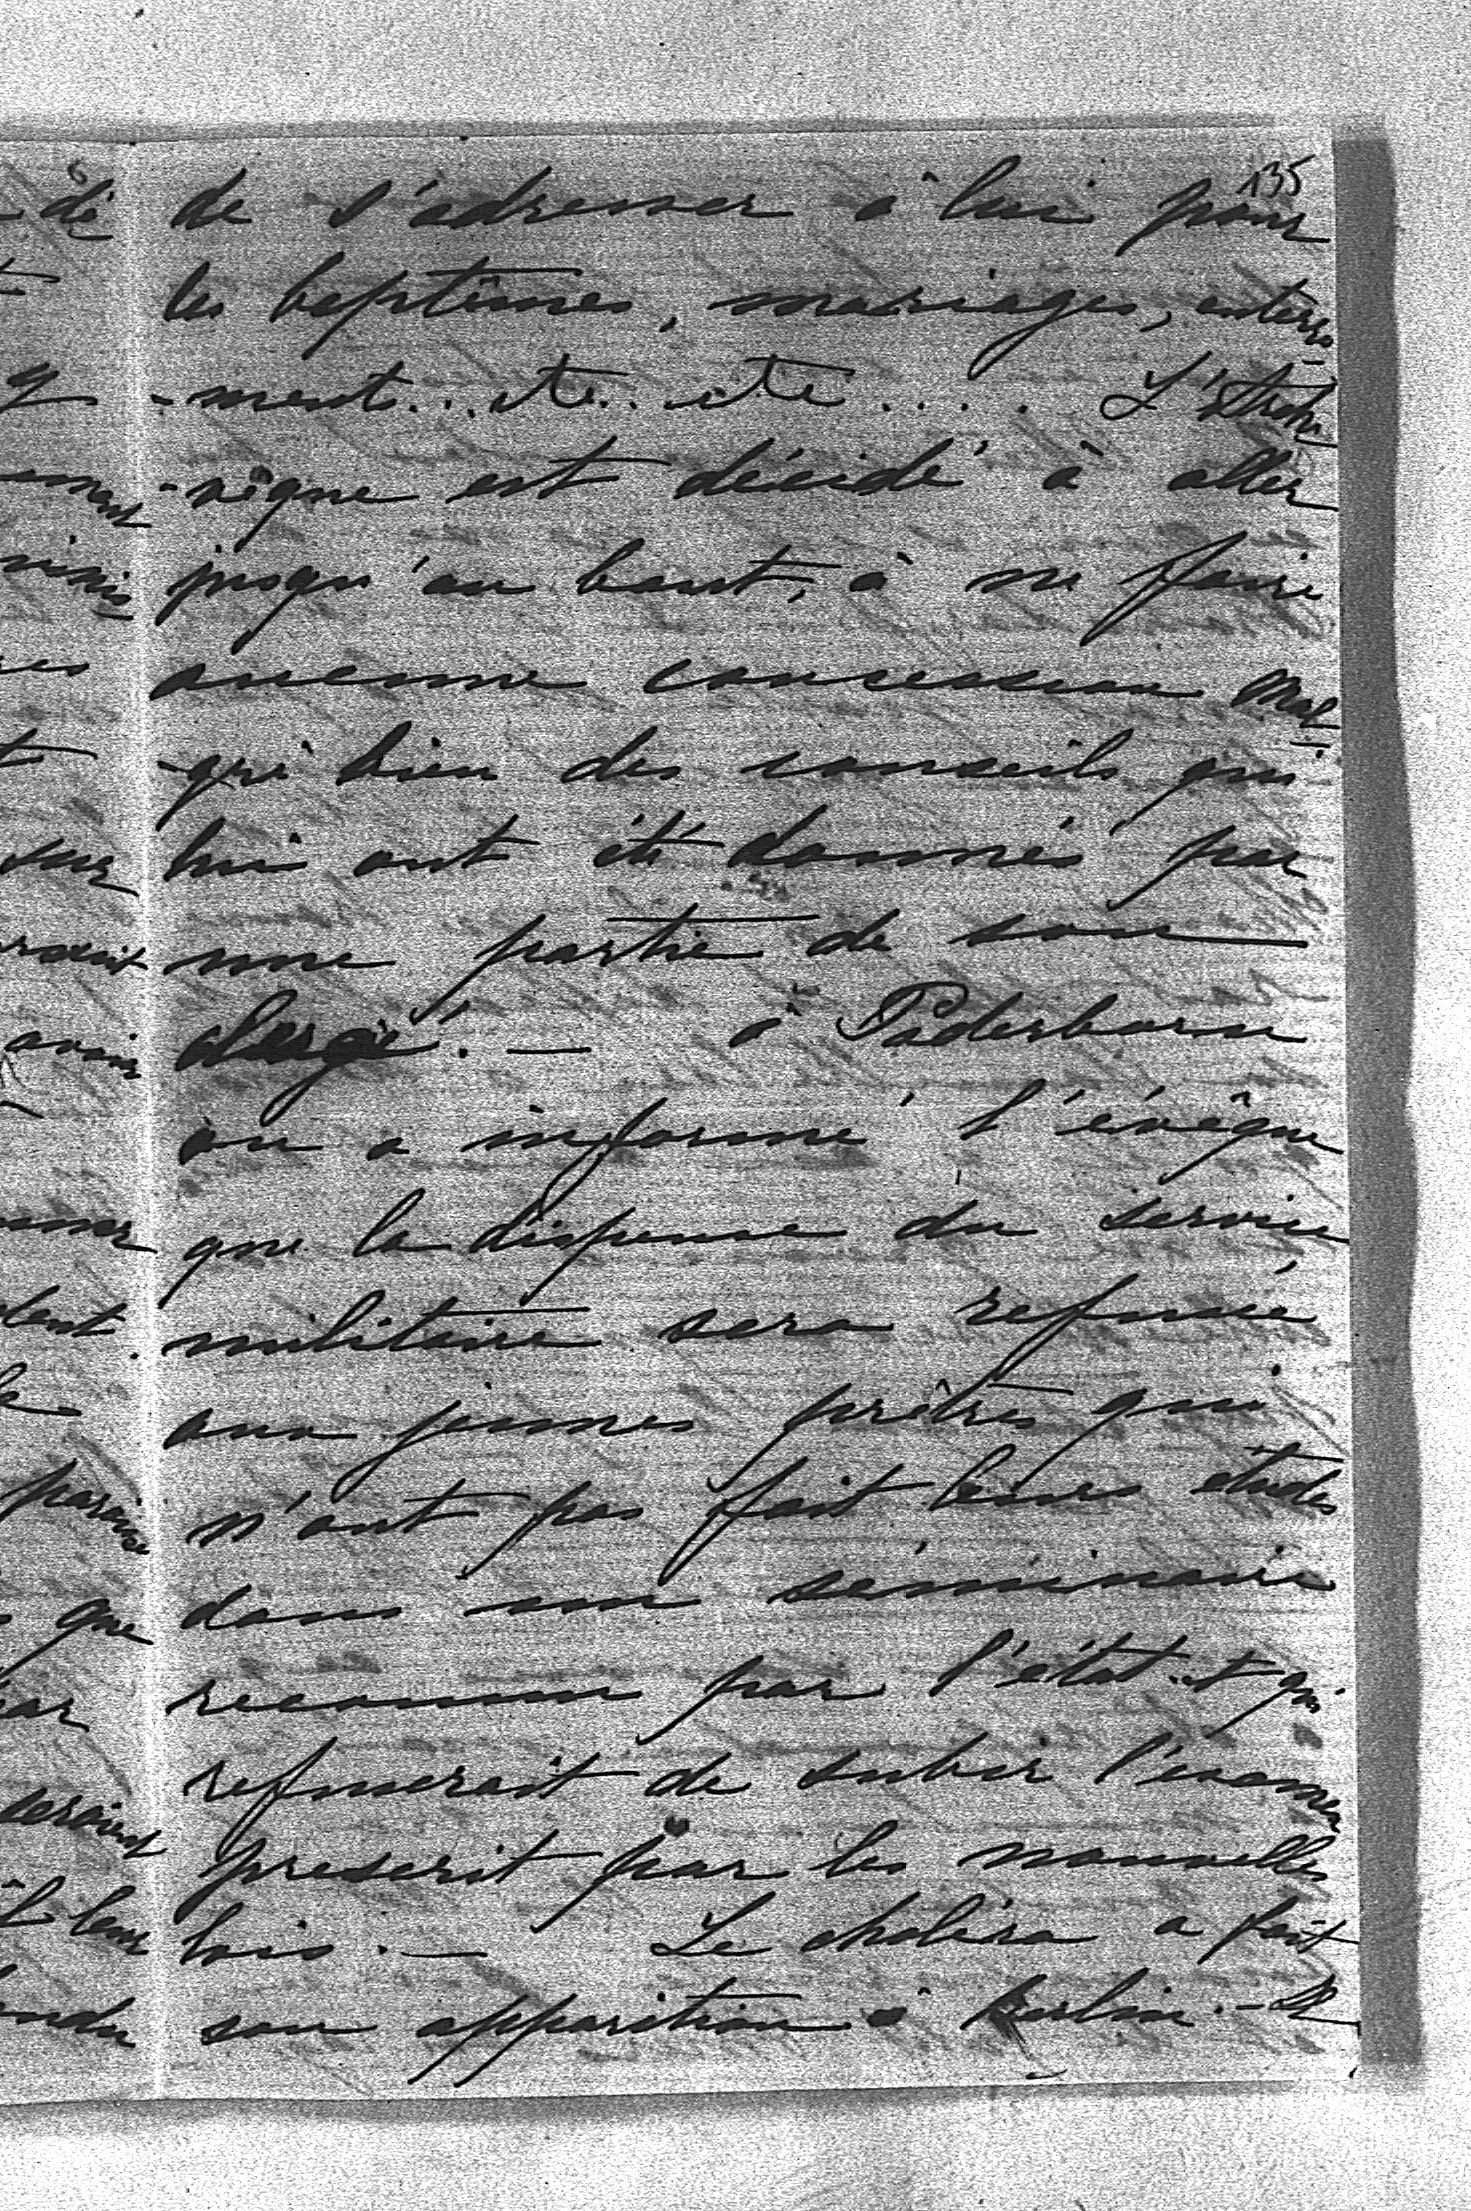 135
de s'adresser à lui pour
les baptêmes, mariages, enterre
-ment... etc.. etc.... L'Arche
-vêque est décidé à aller
jusqu'au bout, à ne faire
aucune concession mal-
-gré bien des conseils qui
lui ont été donnés par
une partie de son
clergé. — à Paderborn
on a informé l'évêque
que la dispense du service
militaire sera refusée
aux jeunes prêtres qui
n'ont pas fait leurs études
dans un séminaire
reconnu par l'état et qui
refuserait de subir l'examen
prescrit par les nouvelles
lois. — Le choléra a fait
son apparition à Berlin. —